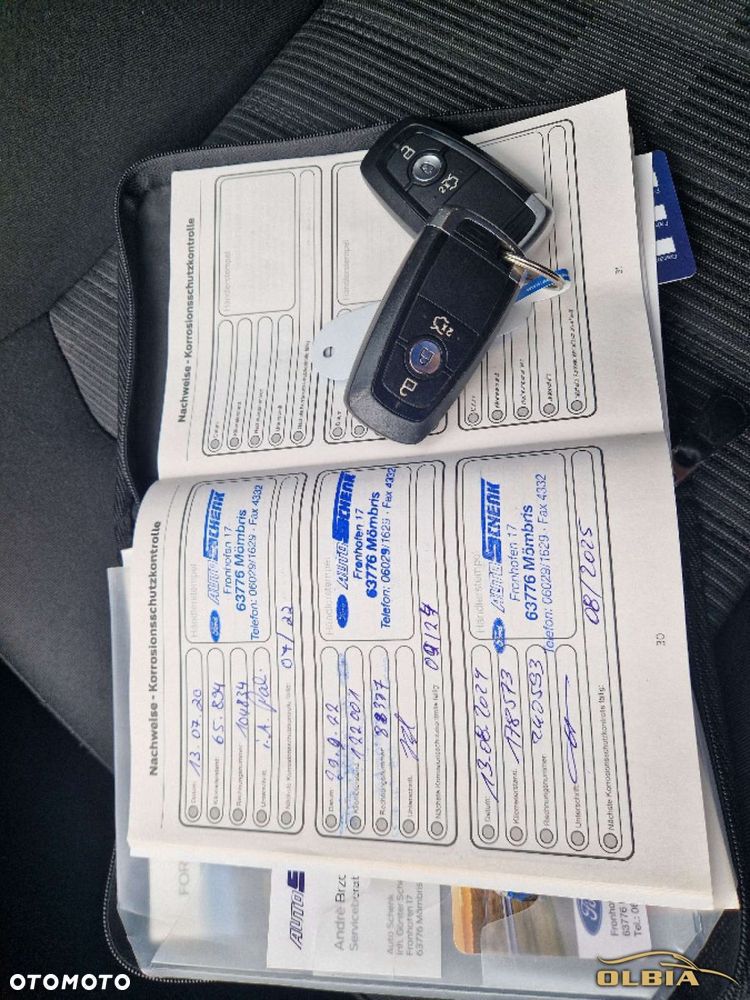 Nachweise - Korrosionsschutzkontrolle
Händlerstempel
31
2x
2x
Nachweise - Korrosionsschutzkontrolle
Händlerstempel
Ford AUTO SCHENK
Fronhofen 17
63776 Mömbris
Telefon: 06029/1629 · Fax 4332
Datum: 13.07.20
Kilometerstand: 65.894
Rechnungsnummer: 104834
Unterschrift: i.A.
Nächste Korrosionsschutzkontrolle fällig: 07/22
Händlerstempel
Ford AUTO SCHENK
Fronhofen 17
63776 Mömbris
Telefon: 06029/1629 · Fax 4332
Datum: 29.9.22
Kilometerstand: 122001
Rechnungsnummer: 88377
Unterschrift:
Nächste Korrosionsschutzkontrolle fällig: 09/24
Händlerstempel
Ford AUTO SCHENK
Fronhofen 17
63776 Mömbris
Telefon: 06029/1629 · Fax 4332
Datum: 13.08.2024
Kilometerstand: 178573
Rechnungsnummer: 240593
Unterschrift:
Nächste Korrosionsschutzkontrolle fällig: 08/2025
30
FOR
AUTO S
André Brzo
Serviceberat
Auto Schenk
Inh. Günter Sche
Fronhofen 17
63776 Mömbris
Ford
Fronho
63776
Tel.: 06
OTOMOTO
OLBIA